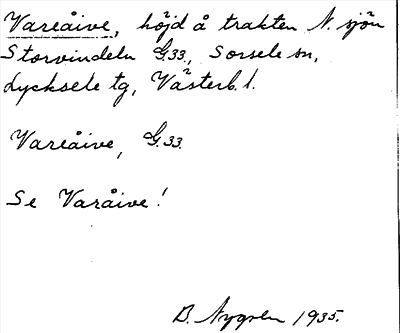 Vareåive, höjd å trakten N. sjön
Storvindeln G.33., Sorsele sn,
Lycksele tg, Västerb. l.
Vareåive, G.33.
Se Varåive!
B. Nygren 1935.